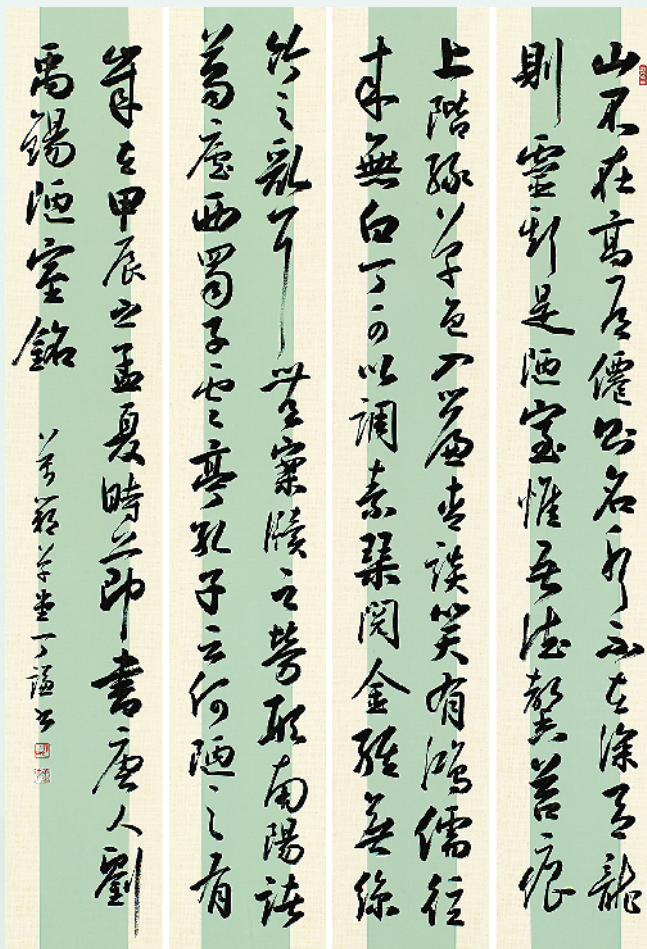 山不在高有僊則名水不在深有龍
則靈斯是陋室惟吾德馨苔痕
上階緑草色入簾青談笑有鴻儒往
來無白丁可以調素琴閱金經無絲
竹之亂耳無案牘之勞形南陽諸
葛廬西蜀子雲亭孔子云何陋之有
歲在甲辰之孟夏時節書唐人劉
禹錫陋室銘
草堂丁謙書